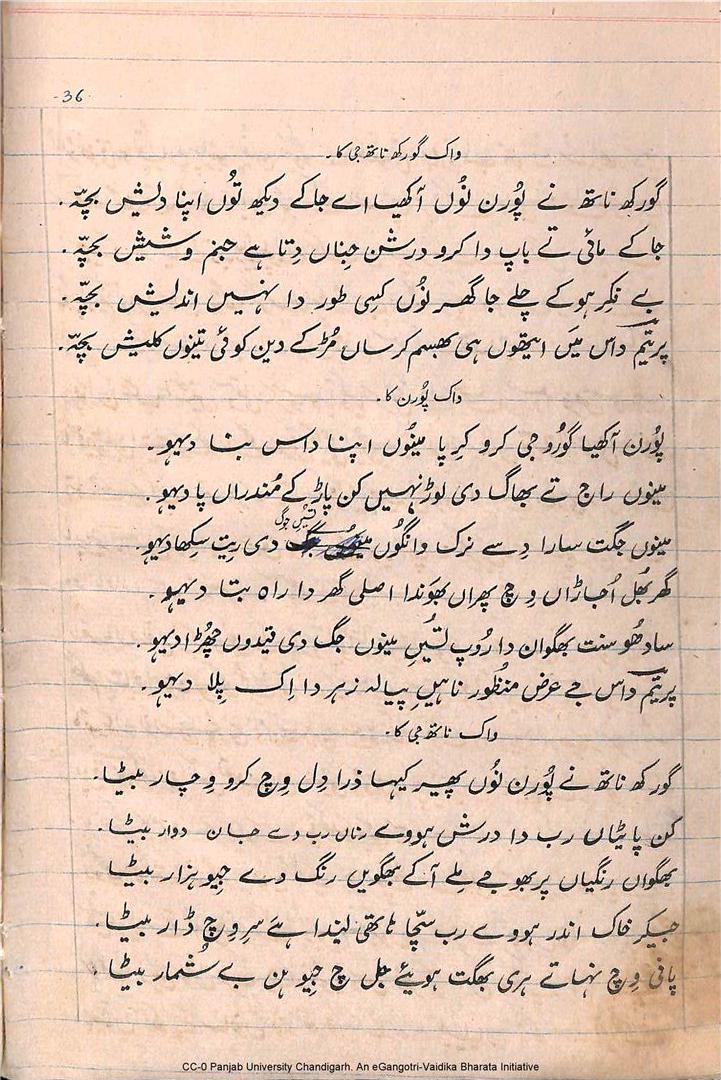 -36-
واک گورکھ ناتھ جی کا۔
گورکھ ناتھ نے پُورن نوُں آکھیا اے جا کے دیکھ توُں اپنا دلیش بچہّ۔
جا کے مائی تے باپ دا کرو درشن جِناں دِتا ہے جنم وشیش بچہّ۔
بے فِکر ہو کے چلے جا گھر نوُں کسِی طور دا نہیں اندیش بچہّ۔
پریتم داس میَں ایتھوں ہی بھسم کرساں مُڑکے دین کوئی تینوں کلیش بچہّ۔
واک پوُرن کا۔
پوُرن آکھیا گورُو جی کرو کرِپا مینوُں اپنا داس بنا دیہو۔
مینوں راج تے بھاگ دی لوڑ نہیں کن پاڑ کے مُندراں پا دیہو۔
مینوں جگت سارا دِسے نرک وانگوُں تسُیں جوگ دی رِیت سِکھا دیہو۔
گھر بھُل اُجاڑاں وِچ پھراں بھَوندا اصلی گھر دا راہ بتا دیہو۔
سادھوُ سنت بھگوان دا رُوپ تسُیں مینوں جگ دی قیدوں چھُڑا دیہو۔
پریتم داس جے عرض منظُور ناہیں پیالہ زہر دا اِک پِلا دیہو۔
واک ناتھ جی کا۔
گورکھ ناتھ نے پوُرن نوُں پھیر کیہا ذرا دِل وِچ کرو وِچار بیٹا۔
کن پاٹیاں رب دا درش ہووے رناں رب دے جان دوار بیٹا۔
بھگواں رنگیاں پربھو جے مِلے آکے بھگویں رنگ دے جیو ہزار بیٹا
جیکر خاک اندر ہووے رب سچّا ہاتھی لیندا ہےَ سر وِچ ڈار بیٹا۔
پانی وِچ نہاتے ہری بھگت ہوئیے جل وچ جیو ہن بے شُمار بیٹا۔
CC-0 Panjab University Chandigarh. An eGangotri-Vaidika Bharata Initiative